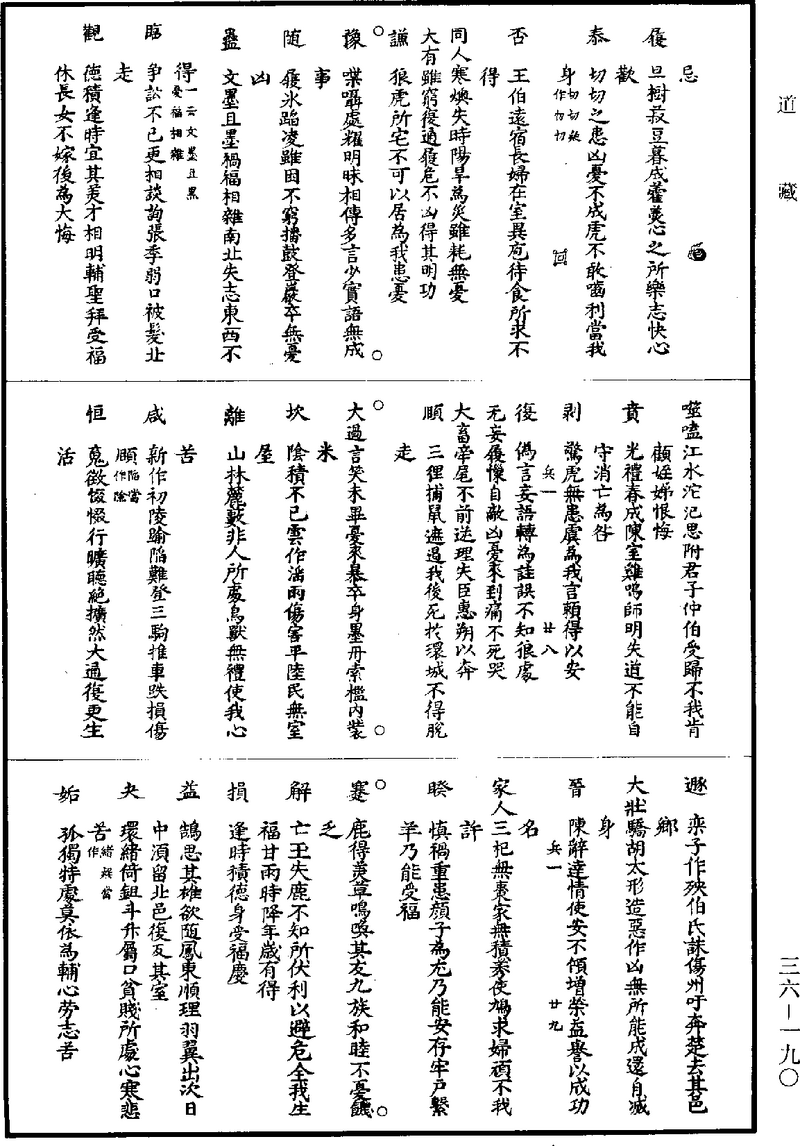 道藏
忌
履　旦樹菽豆暮成藿羹心之所樂志快心
歡
泰　切切之患凶憂不成虎不敢齒利當我
身
否　王伯遠宿長婦在室異庖待食所求不
得
同人寒煥失時陽旱為災雖耗無憂
大有雖窮復通履危不凶得其明功
謙　狼虎所宅不可以居為我患憂
豫　喋囁處曜明昧相傳多言少實語無成
事
随　履氷蹈凌雖困不窮播鼓登巖卒無憂
凶
蠱　文墨且墨禍福相雜南北失志東西不
得一云文墨且黑憂福相雜
臨　争訟不已更相談訽張季弱口被髮北
走
觀　德積逢時宜其美才相明輔聖拜受福
休長女不嫁後為大悔
噬嗑江水沱汜思附君子仲伯受歸不我肯
顧姪娣恨悔
賁　光禮春成陳室雞鳴師明失道不能自
守消亡為咎
剥　驚虎無患虞為我言賴得以安
兵一　廿八
復　偽言妄語轉為詿誤不知狼處
无妄履慄自敵凶憂來到痛不死哭
大畜牽尾不前逆理失臣惠朔以奔
頤　三狸捕鼠遮遏我後死於環城不得脫
走
大過言笑未畢憂來暴卒身墨丹索檻內裝
米
坎　陰積不已雲作滛雨傷害平陸民無室
屋
離　山林麓藪非人所處鳥獸無禮使我心
苦
咸　新作初陵踰陷難登三駒推車跌損傷
頤陷當作陰
恒　䰟微惙惙行曠聽絶擴然大通復更生
活
遯　欒子作殃伯氏誅傷州吁奔楚去其邑
鄉
大壯驕胡太形造惡作凶無所能成還自滅
身
晉　陳辭達情使安不傾增榮益譽以成功
名
兵一　廿九
家人三杞無棗家無積莠使鳩求婦頑不我
許
睽　慎禍重患顔子為尤乃能安存牢戶繫
羊乃能受福
蹇　鹿得美草鳴喚其友九族和睦不憂饑
乏
解　亡王失鹿不知所伏利以避危全我生
福甘雨時降年歲有得
損　逢時積德身受福慶
益　鵠思其雄欲随鳳東順理羽翼出次日
中須留北邑復反其室
夬　環緒倚鉏斗升屬口貧賤所處心寒悲
苦
姤　孤獨特處莫依為輔心勞志苦
三六—一九〇